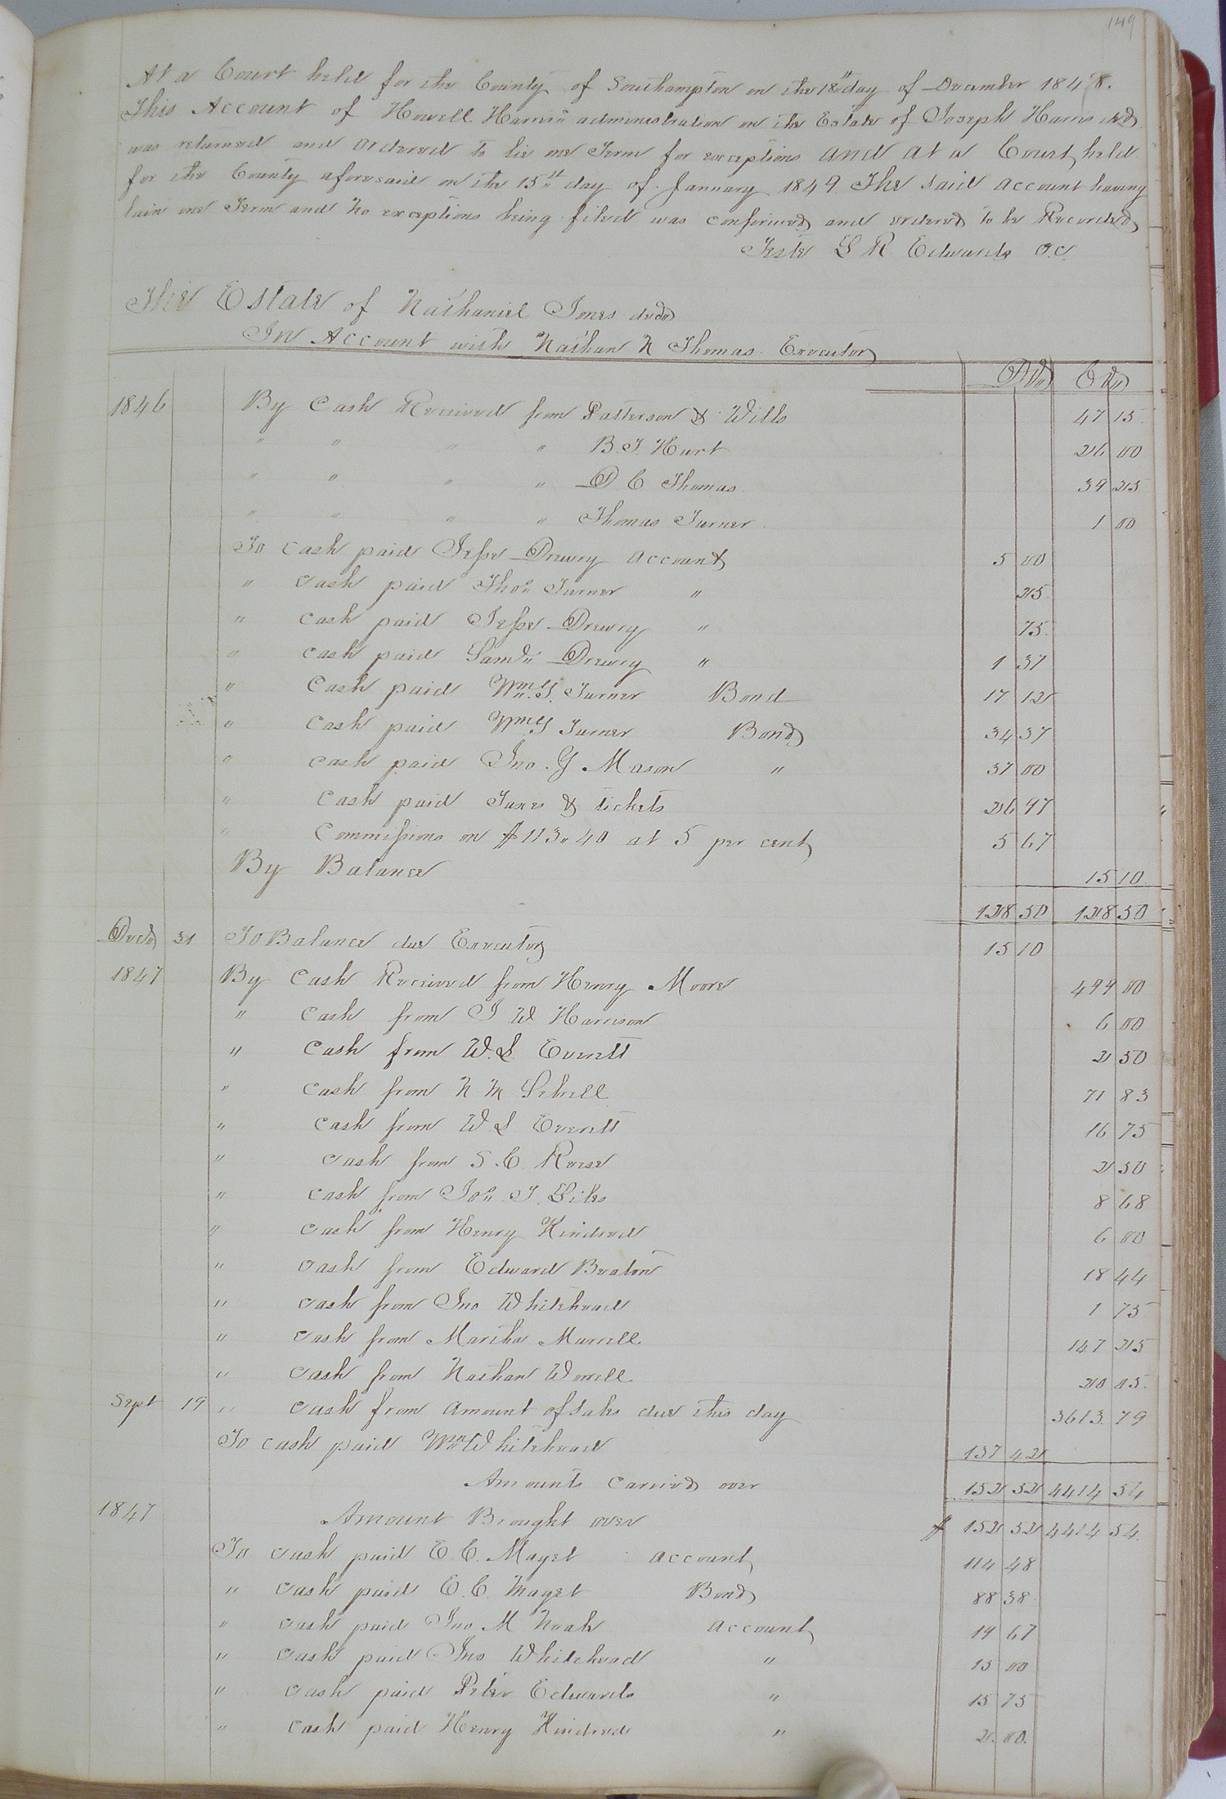 149
At a Court held for the County of Southampton on the 18th day of December 1848.
This Account of Howell Harris's administration on the Estate of Joseph Harris decd
was returned and ordered to lie one Term for exceptions and at a Court held
for the County aforesaid on the 15th day of January 1849 The said account having
lain one Term and no exceptions being filed was confirmed and ordered to be Recorded
Teste L R Edwards C.C.
The Estate of Nathaniel Jones decd
In Account with Nathan N Thomas Executor
Dr Cr
1846 By Cash Received from Patterson & Wills 47 15
" " " " B. T. Hart 26 00
" " " " D C Thomas 39 25
" " " " Thomas Turner 1 00
To cash paid Jesse Drewry account 5 00
" cash paid Thos Turner " 25
" cash paid Jesse Drewry " 75
" cash paid Saml Drewry " 1 37
" cash paid Wm G. Turner Bond 17 12
" cash paid Wm G Turner Bond 34 37
" cash paid Jno. Y Mason " 37 00
" cash paid Taxes & tickets 26 97
" Commissions on $113.40 at 5 per cent 5 67
By Balance 15 10
128 50 128 50
Decr 31 To Balance due Executor 15 10
1847 By Cash Received from Henry Moore 499 00
" cash from J W Harrison 6 00
" cash from W. L. Everett 2 50
" cash from N M Sebrell 71 83
" cash from W L Everett 16 75
" cash from S. C. Rorse 2 50
" cash from Jos. T. 8 68
" cash from Henry Kindred 6 00
" cash from Edward Beaton 18 44
" cash from Jno Whitehead 1 75
" cash from Martha Murrell 147 25
" cash from Nathan Worrell 20 05
Sept 19 " cash from amount of sales due this day 3613 79
To cash paid Wm Whitehead 137 42
Amounts carried over 152 52 4414 54
1847 Amount Brought over $ 152 52 4414 54
To cash paid E. C. Mayet account 114 48
" cash paid E. C. Mayet Bond 88 38
" cash paid Jno M Noah account 19 67
" cash paid Jno Whitehead " 15 00
" cash paid Peter Edwards " 15 75
" cash paid Henry Kindred " 2.00.